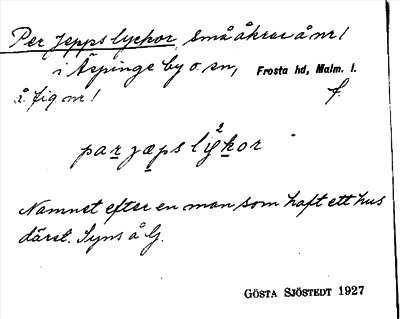 Per Jeppslyckor, små åkrar å nr 1
i Äspinge by o. sn, Frosta hd, Malm. l.
å fig nr 1 f.
par jæps lykor
Namnet efter en man som haft ett hus
därst. Syns å G.
GÖSTA SJÖSTEDT 1927